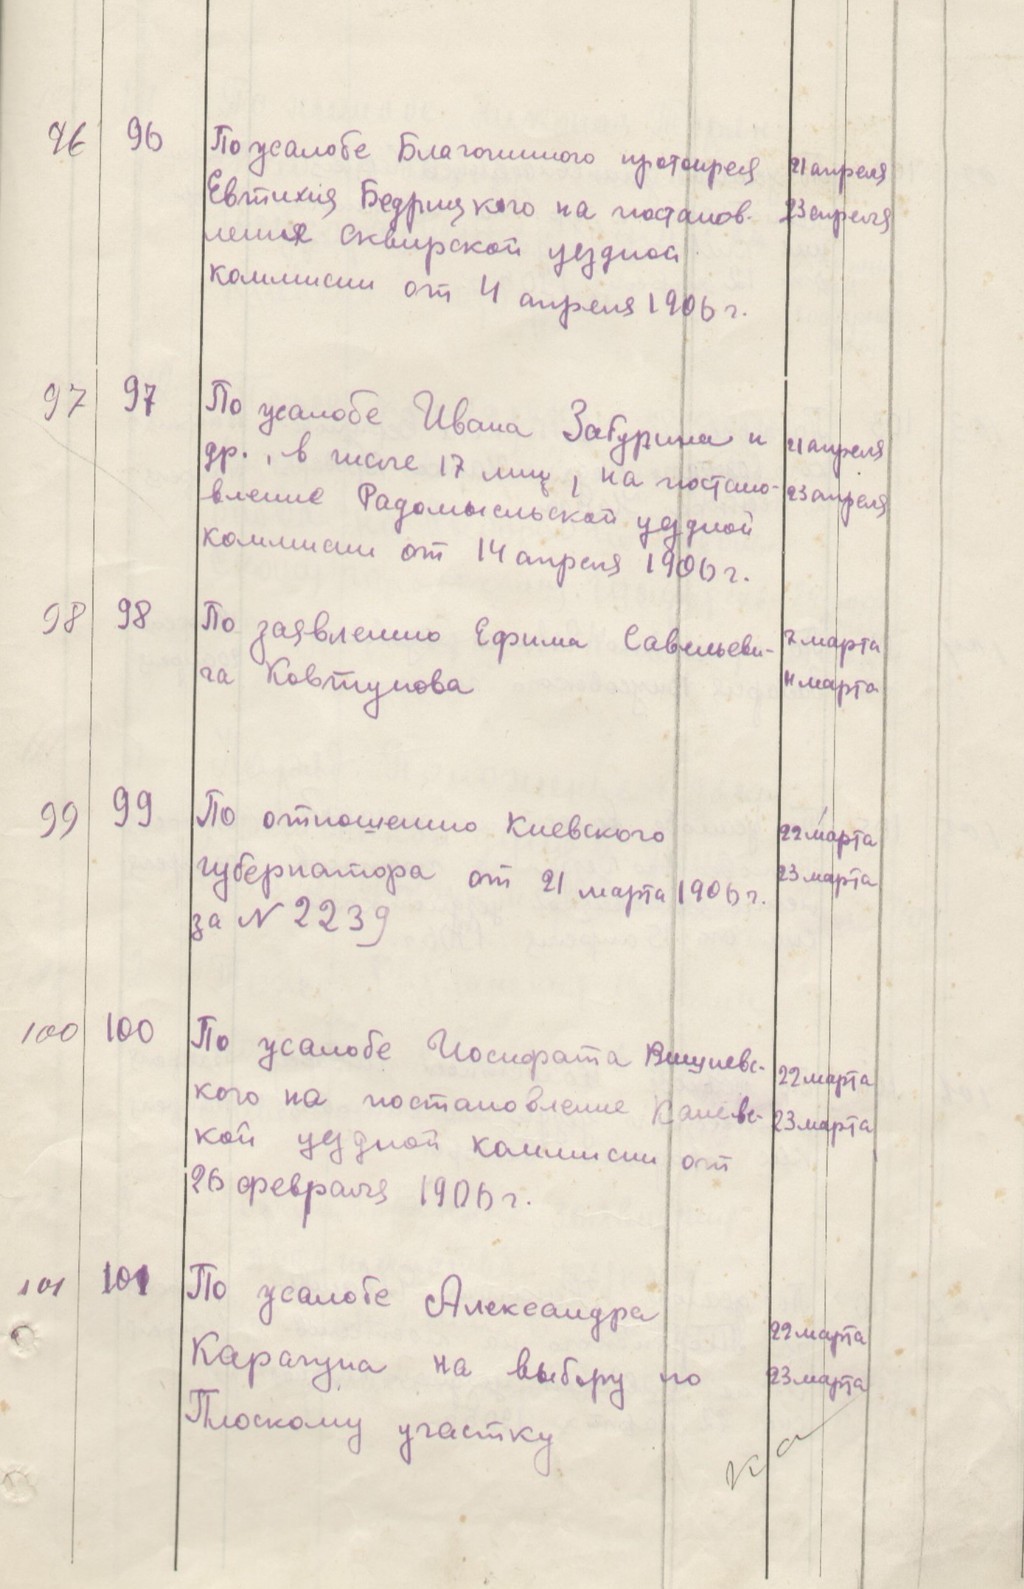 96 96 По жалобе Благочинного протоирея 21 апреля
Евтихия Бедрицкого на постанов- 23 апреля
ления Сквирской уездной
коммисии от 4 апреля 1906 г.
97 97 По жалобе Ивана Забурина и 21 апреля
др., в числе 17 лиц, на постано- 23 апреля
вление Радомысльской уездной
коммисии от 14 апреля 1906 г.
98 98 По заявлению Ефима Савельеви- 7 марта
ча Ковтунова 11 марта
99 99 По отношению Киевского 22 марта
губернатора от 21 марта 1906 г. 23 марта
за N 2239
100 100 По жалобе Иосифата Вишневс- 22 марта
кого на постановление Каневс- 23 марта
кой уездной коммисии от
26 февраля 1906 г.
101 101 По жалобе Александра 22 марта
Карагуна на выбору по 23 марта
Плоскому участку